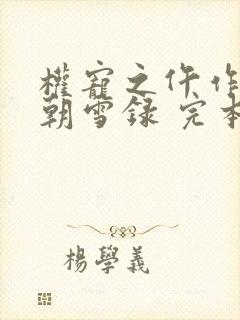 權寵之仵作
朝雪録 完本
楊學義